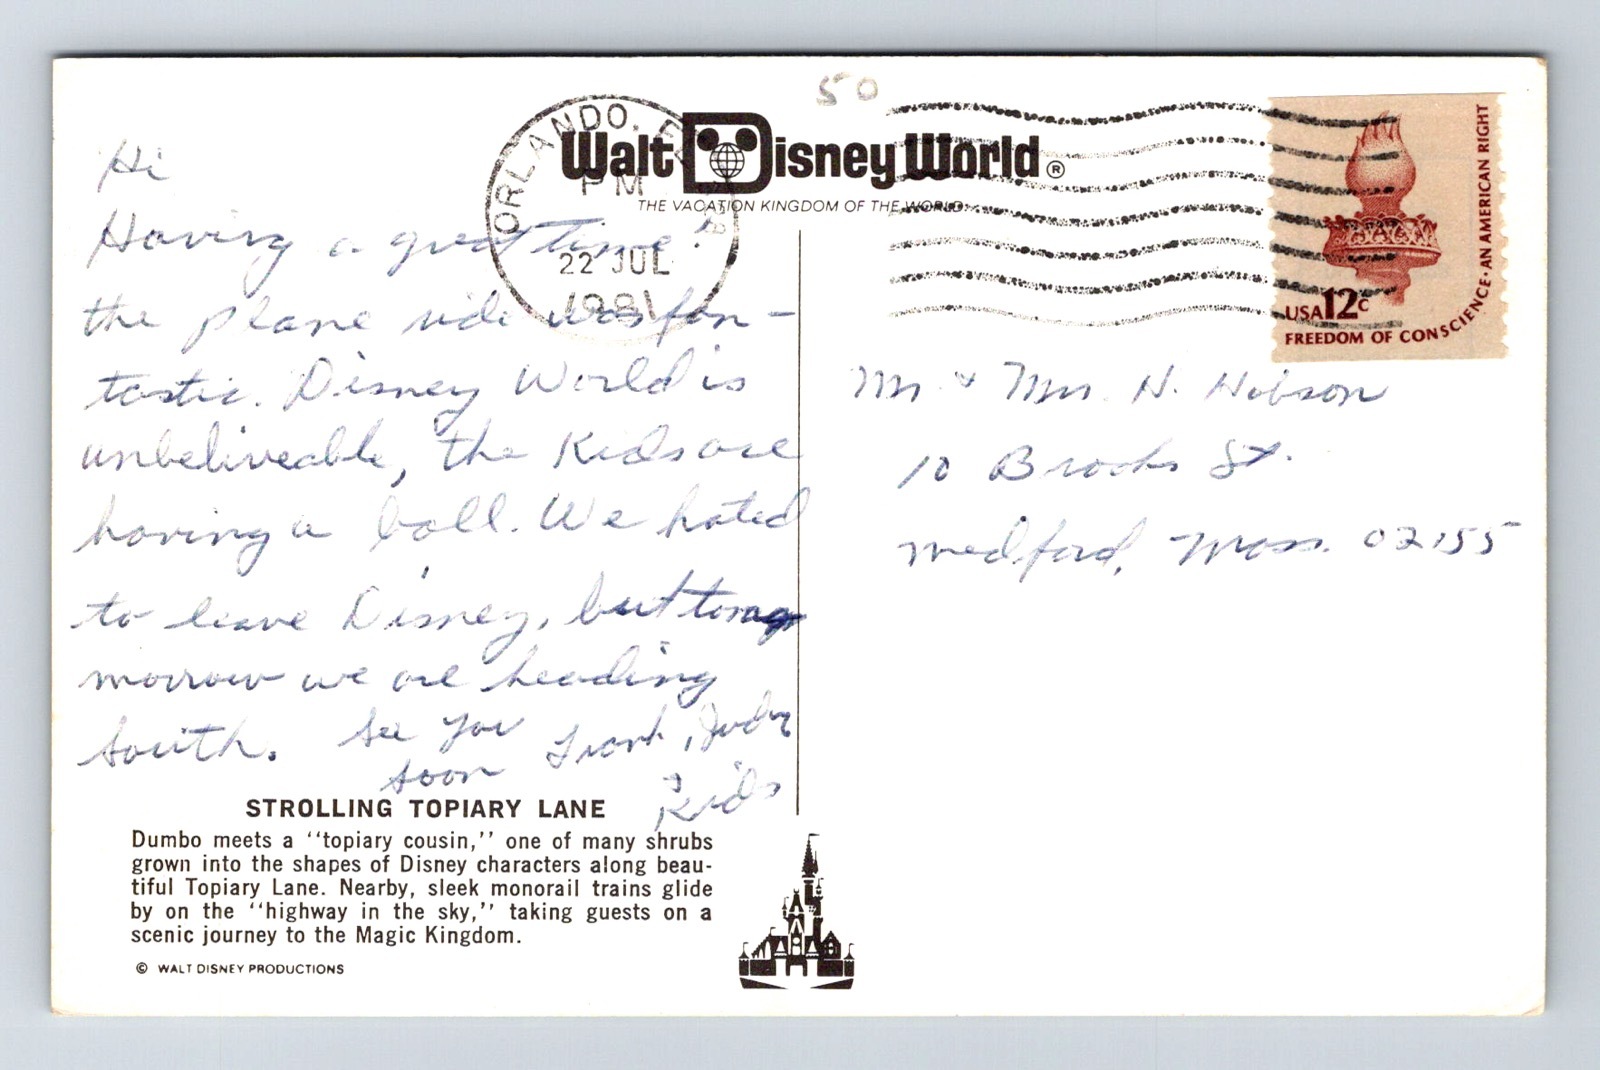 50
Walt Disney World ®
THE VACATION KINGDOM OF THE WORLD
ORLANDO, FL
PM
22 JUL
1981
USA 12c
FREEDOM OF CONSCIENCE · AN AMERICAN RIGHT
Hi
Having a great time!
the plane ride was fan-
tastic. Disney World is
unbeliveable, the Kids are
having a ball. We hated
to leave Disney, but to
morrow we are heading
South. See you
soon Frank, Judy
& Kids
Mr & Mrs. H. Hobson
10 Brooks St.
Medford, Mass. 02155
STROLLING TOPIARY LANE
Dumbo meets a "topiary cousin," one of many shrubs
grown into the shapes of Disney characters along beau-
tiful Topiary Lane. Nearby, sleek monorail trains glide
by on the "highway in the sky," taking guests on a
scenic journey to the Magic Kingdom.
© WALT DISNEY PRODUCTIONS